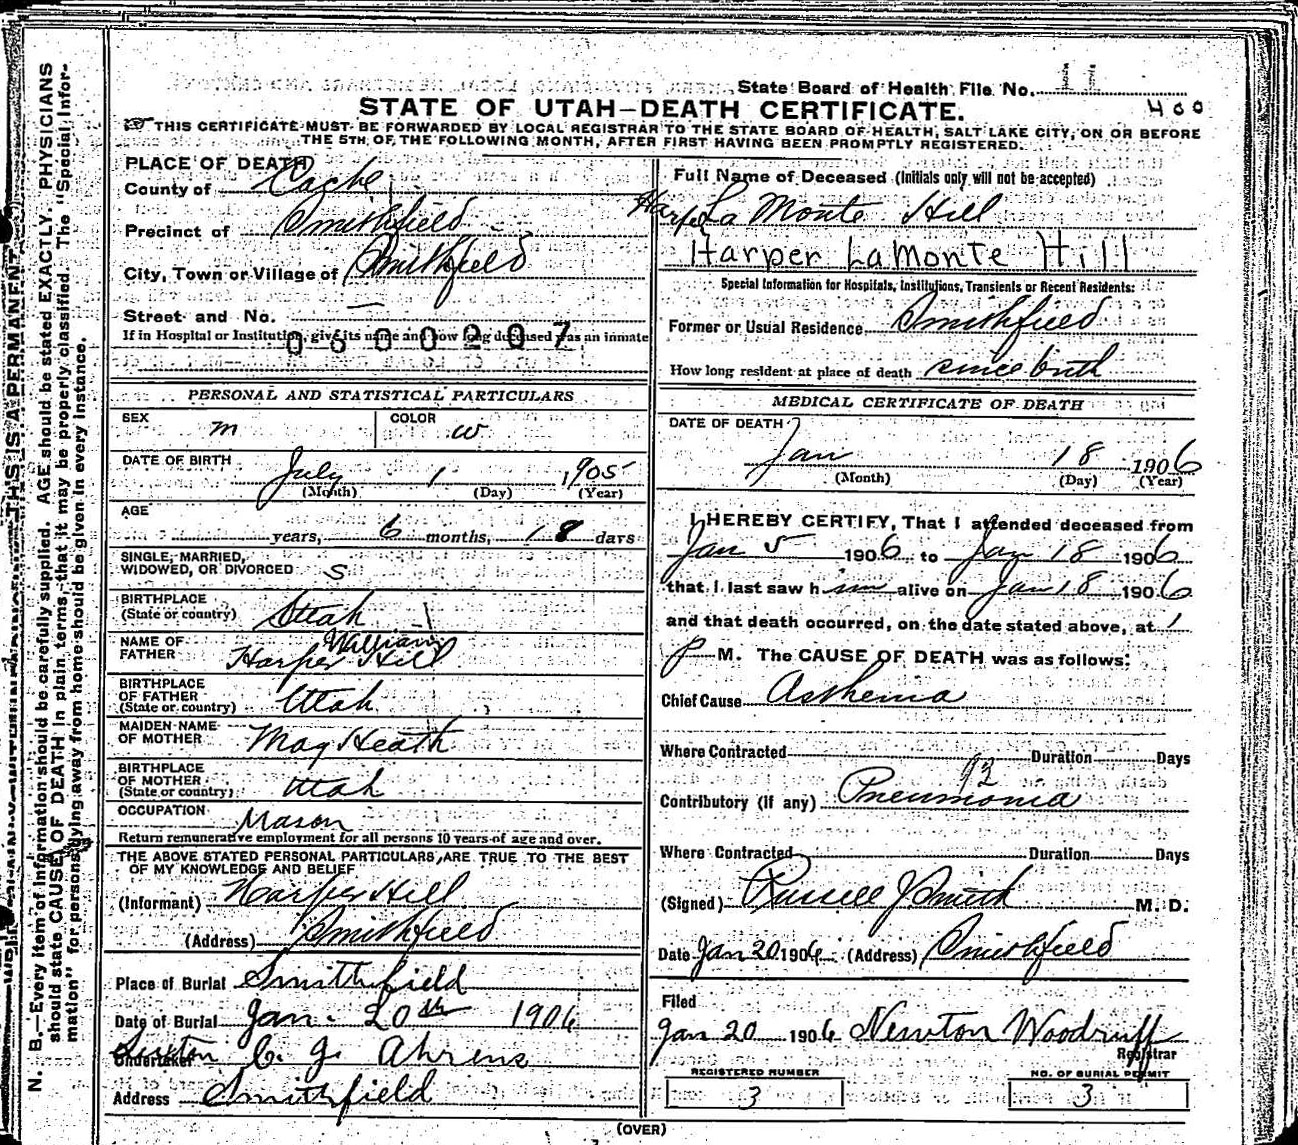 State Board of Health File No. 11
400
STATE OF UTAH—DEATH CERTIFICATE.
THIS CERTIFICATE MUST BE FORWARDED BY LOCAL REGISTRAR TO THE STATE BOARD OF HEALTH, SALT LAKE CITY, ON OR BEFORE
THE 5TH OF THE FOLLOWING MONTH, AFTER FIRST HAVING BEEN PROMPTLY REGISTERED.
PLACE OF DEATH
County of Cache
Precinct of Smithfield
City, Town or Village of Smithfield
Street and No. —
If in Hospital or Institution, give its name and how long deceased was an inmate
0600207
PERSONAL AND STATISTICAL PARTICULARS
SEX m COLOR w
DATE OF BIRTH July 1 1905
(Month) (Day) (Year)
AGE years, 6 months, 18 days
SINGLE, MARRIED,
WIDOWED, OR DIVORCED S
BIRTHPLACE
(State or country) Utah
NAME OF
FATHER Harper William Hill
BIRTHPLACE
OF FATHER
(State or country) Utah
MAIDEN NAME
OF MOTHER May Heath
BIRTHPLACE
OF MOTHER
(State or country) Utah
OCCUPATION Mason
Return remunerative employment for all persons 10 years of age and over.
THE ABOVE STATED PERSONAL PARTICULARS ARE TRUE TO THE BEST
OF MY KNOWLEDGE AND BELIEF
(Informant) Harper Hill
(Address) Smithfield
Place of Burial Smithfield
Date of Burial Jan. 20th 1906
Sexton
Undertaker C. J. Ahrens
Address Smithfield
Full Name of Deceased (Initials only will not be accepted)
Harper La Monte Hill
Harper LaMonte Hill
Special Information for Hospitals, Institutions, Transients or Recent Residents:
Former or Usual Residence Smithfield
How long resident at place of death since birth
MEDICAL CERTIFICATE OF DEATH
DATE OF DEATH
Jan 18 1906
(Month) (Day) (Year)
I HEREBY CERTIFY, That I attended deceased from
Jan 5 1906 to Jan 18 1906
that I last saw him alive on Jan 18 1906
and that death occurred, on the date stated above, at 1
P M. The CAUSE OF DEATH was as follows:
Chief Cause Asthema
Where Contracted Duration Days
92
Contributory (if any) Pneumonia
Where Contracted Duration Days
(Signed) Russell J Smith M. D.
Date Jan 20 1906 (Address) Smithfield
Filed
Jan 20 1906 Newton Woodruff
Registrar
REGISTERED NUMBER
3
NO. OF BURIAL PERMIT
3
(OVER)
THIS IS A PERMANENT
N. B.—Every item of information should be carefully supplied. AGE should be stated EXACTLY. PHYSICIANS
should state CAUSE OF DEATH in plain terms, that it may be properly classified. The "Special Infor-
mation" for persons dying away from home should be given in every instance.